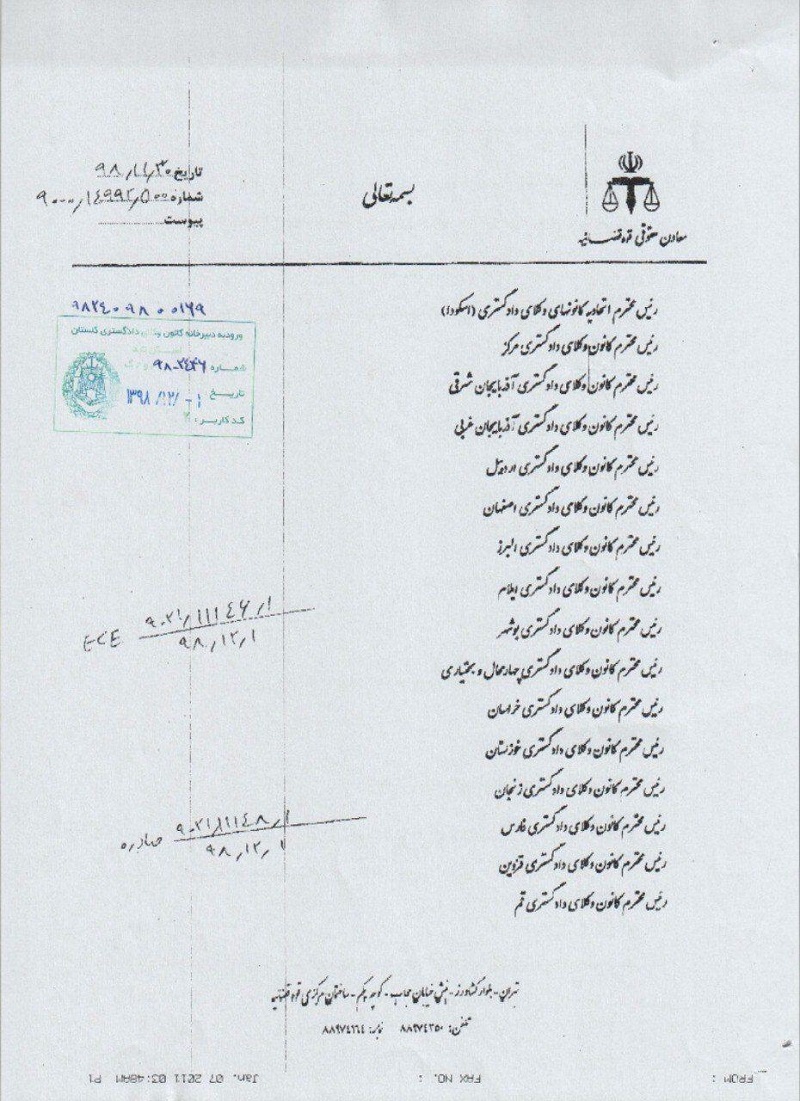 بسمه تعالی
معاون حقوقی قوه قضائیه
تاریخ ۹۸/۱۱/۳۰
شماره ۹۰۰۰/۱۴۹۹۲/۵۰۰
پیوست
رئیس محترم اتحادیه کانونهای وکلای دادگستری (اسکودا)
رئیس محترم کانون وکلای دادگستری مرکز
رئیس محترم کانون وکلای دادگستری آذربایجان شرقی
رئیس محترم کانون وکلای دادگستری آذربایجان غربی
رئیس محترم کانون وکلای دادگستری اردبیل
رئیس محترم کانون وکلای دادگستری اصفهان
رئیس محترم کانون وکلای دادگستری البرز
رئیس محترم کانون وکلای دادگستری ایلام
رئیس محترم کانون وکلای دادگستری بوشهر
رئیس محترم کانون وکلای دادگستری چهارمحال و بختیاری
رئیس محترم کانون وکلای دادگستری خراسان
رئیس محترم کانون وکلای دادگستری خوزستان
رئیس محترم کانون وکلای دادگستری زنجان
رئیس محترم کانون وکلای دادگستری فارس
رئیس محترم کانون وکلای دادگستری قزوین
رئیس محترم کانون وکلای دادگستری قم
۹۸۲۴۰۹۸۰۰۱۶۹
ورودیه دبیرخانه کانون وکلای دادگستری گلستان
شماره ۹۸-۲۴۳۶
تاریخ ۱۳۹۸/۱۲/-۱
کد کاربر: ۲
۹۰۲۱/۱۱۱۴۶/۱
ECE
۹۸/۱۲/۱
۹۰۲۱/۱۱۱۴۸/۱
صادره
۹۸/۱۲/۱
تهران - بلوار کشاورز - نبش خیابان حجاب - کوچه یکم - ساختمان مرکزی قوه قضائیه
تلفن: ۸۸۹۷۴۲۵۰ نمابر: ۸۸۹۷۴۲۶۴
FROM : FAX NO. : Jan. 07 2011 03:48AM P1